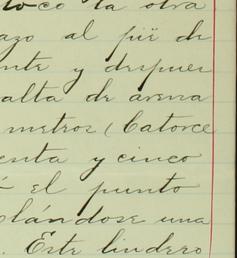 toco la otra
azo al pié de
nte y despues
alta de arena
metros (Catorce
enta y cinco
el punto
lándose una
. Este lindero